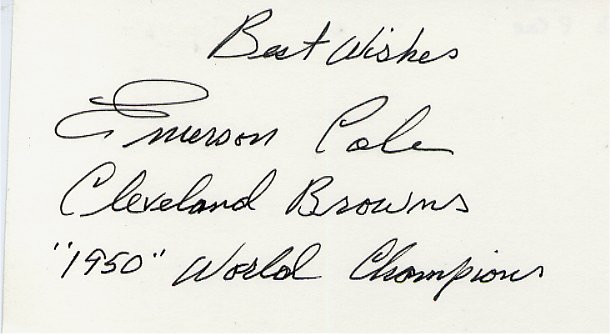 Best Wishes
Emerson Cole
Cleveland Browns
"1950" World Champions